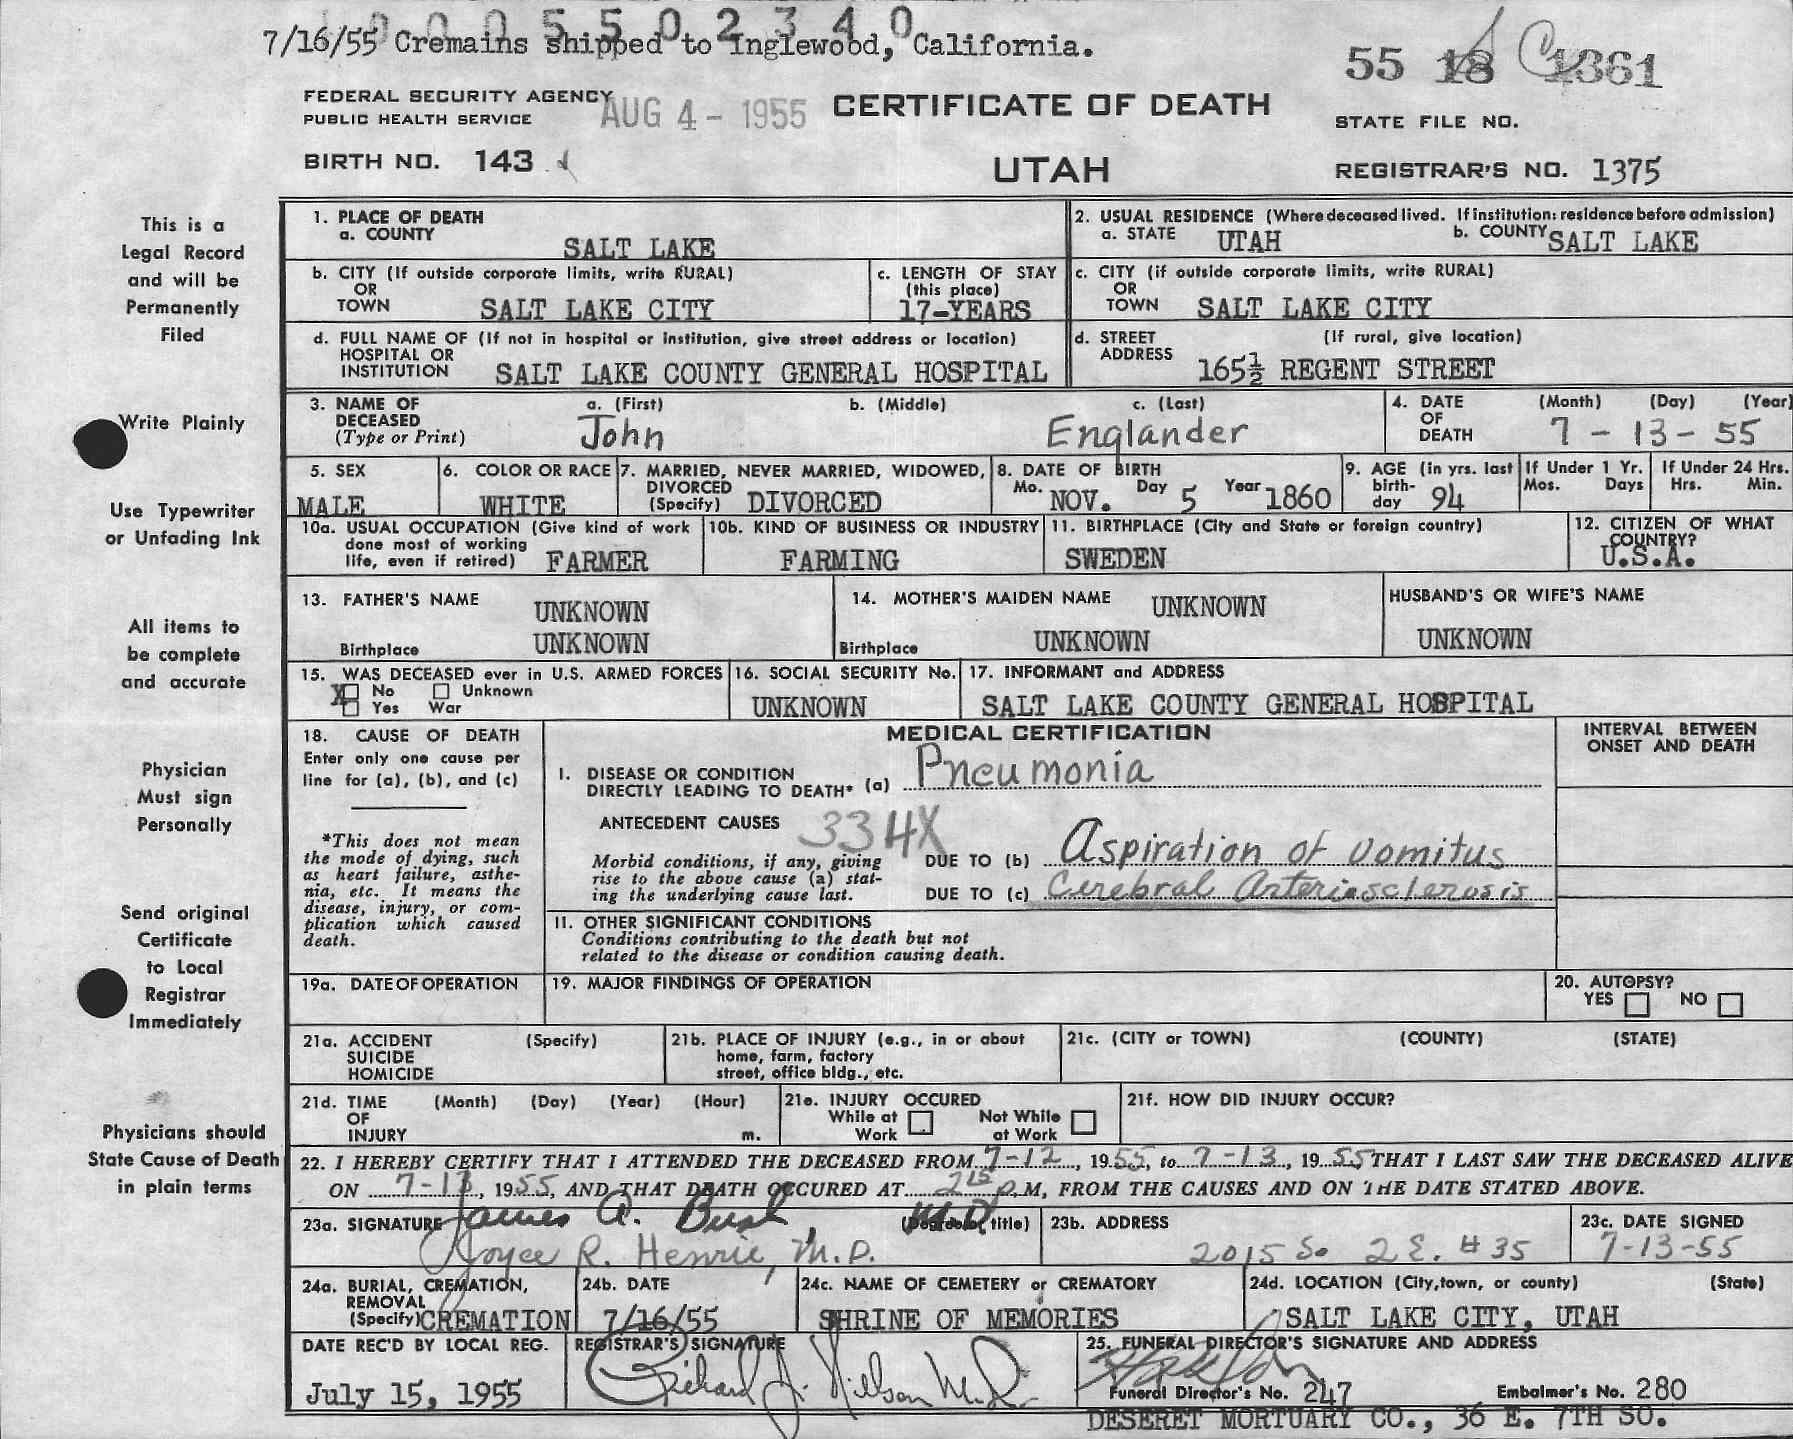 1 0 0 0 5 5 0 2 3 4 0
7/16/55 Cremains shipped to Inglewood, California.
55 18 C 1361
FEDERAL SECURITY AGENCY
PUBLIC HEALTH SERVICE
AUG 4 - 1955
CERTIFICATE OF DEATH
STATE FILE NO.
BIRTH NO. 143
UTAH
REGISTRAR'S NO. 1375
This is a
Legal Record
and will be
Permanently
Filed
1. PLACE OF DEATH
a. COUNTY
SALT LAKE
2. USUAL RESIDENCE (Where deceased lived. If institution: residence before admission)
a. STATE UTAH b. COUNTY SALT LAKE
b. CITY (If outside corporate limits, write RURAL)
OR
TOWN SALT LAKE CITY
c. LENGTH OF STAY
(this place)
17-YEARS
c. CITY (if outside corporate limits, write RURAL)
OR
TOWN SALT LAKE CITY
d. FULL NAME OF (If not in hospital or institution, give street address or location)
HOSPITAL OR
INSTITUTION SALT LAKE COUNTY GENERAL HOSPITAL
d. STREET (If rural, give location)
ADDRESS
165½ REGENT STREET
Write Plainly
3. NAME OF a. (First) b. (Middle) c. (Last)
DECEASED
(Type or Print) John Englander
4. DATE (Month) (Day) (Year)
OF
DEATH 7 - 13 - 55
Use Typewriter
or Unfading Ink
5. SEX
MALE
6. COLOR OR RACE
WHITE
7. MARRIED, NEVER MARRIED, WIDOWED,
DIVORCED
(Specify) DIVORCED
8. DATE OF BIRTH
Mo. NOV. Day 5 Year 1860
9. AGE (in yrs. last
birth-
day 94
If Under 1 Yr.
Mos. Days
If Under 24 Hrs.
Hrs. Min.
10a. USUAL OCCUPATION (Give kind of work
done most of working
life, even if retired) FARMER
10b. KIND OF BUSINESS OR INDUSTRY
FARMING
11. BIRTHPLACE (City and State or foreign country)
SWEDEN
12. CITIZEN OF WHAT
COUNTRY?
U.S.A.
All items to
be complete
and accurate
13. FATHER'S NAME UNKNOWN
Birthplace UNKNOWN
14. MOTHER'S MAIDEN NAME UNKNOWN
Birthplace UNKNOWN
HUSBAND'S OR WIFE'S NAME
UNKNOWN
15. WAS DECEASED ever in U.S. ARMED FORCES
X No Unknown
Yes War
16. SOCIAL SECURITY No.
UNKNOWN
17. INFORMANT and ADDRESS
SALT LAKE COUNTY GENERAL HOSPITAL
Physician
Must sign
Personally
18. CAUSE OF DEATH
Enter only one cause per
line for (a), (b), and (c)
*This does not mean
the mode of dying, such
as heart failure, asthe-
nia, etc. It means the
disease, injury, or com-
plication which caused
death.
MEDICAL CERTIFICATION
INTERVAL BETWEEN
ONSET AND DEATH
I. DISEASE OR CONDITION
DIRECTLY LEADING TO DEATH* (a) Pneumonia
ANTECEDENT CAUSES 334X
Morbid conditions, if any, giving
rise to the above cause (a) stat-
ing the underlying cause last.
DUE TO (b) Aspiration of vomitus
DUE TO (c) Cerebral Arteriosclerosis
II. OTHER SIGNIFICANT CONDITIONS
Conditions contributing to the death but not
related to the disease or condition causing death.
Send original
Certificate
to Local
Registrar
Immediately
19a. DATE OF OPERATION
19. MAJOR FINDINGS OF OPERATION
20. AUTOPSY?
YES NO
21a. ACCIDENT (Specify)
SUICIDE
HOMICIDE
21b. PLACE OF INJURY (e.g., in or about
home, farm, factory
street, office bldg., etc.
21c. (CITY or TOWN) (COUNTY) (STATE)
21d. TIME (Month) (Day) (Year) (Hour)
OF
INJURY m.
21e. INJURY OCCURED
While at Not While
Work at Work
21f. HOW DID INJURY OCCUR?
Physicians should
State Cause of Death
in plain terms
22. I HEREBY CERTIFY THAT I ATTENDED THE DECEASED FROM 7-12, 1955, to 7-13, 1955 THAT I LAST SAW THE DECEASED ALIVE
ON 7-13, 1955, AND THAT DEATH OCCURED AT 2:15 P.M, FROM THE CAUSES AND ON THE DATE STATED ABOVE.
23a. SIGNATURE James A. Bush, M.D. (Degree or title)
Joyce R. Henrie, M.D.
23b. ADDRESS
2015 So 2 E. #35
23c. DATE SIGNED
7-13-55
24a. BURIAL, CREMATION,
REMOVAL
(Specify) CREMATION
24b. DATE
7/16/55
24c. NAME OF CEMETERY or CREMATORY
SHRINE OF MEMORIES
24d. LOCATION (City, town, or county) (State)
SALT LAKE CITY, UTAH
DATE REC'D BY LOCAL REG.
July 15, 1955
REGISTRAR'S SIGNATURE
Richard J. Nillson M.D.
25. FUNERAL DIRECTOR'S SIGNATURE AND ADDRESS
Funeral Director's No. 247 Embalmer's No. 280
DESERET MORTUARY CO., 36 E. 7TH SO.